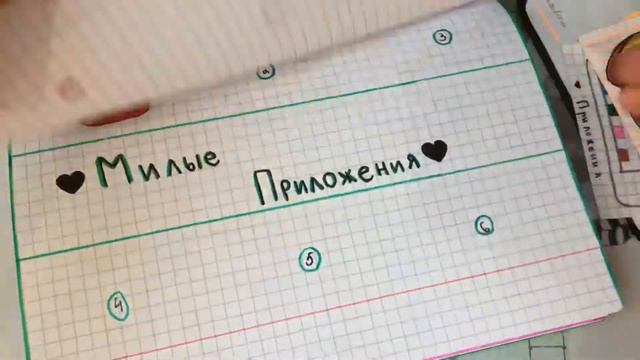 2 3
♥ Милые
Приложения ♥
4 5 6
♥ Приложения